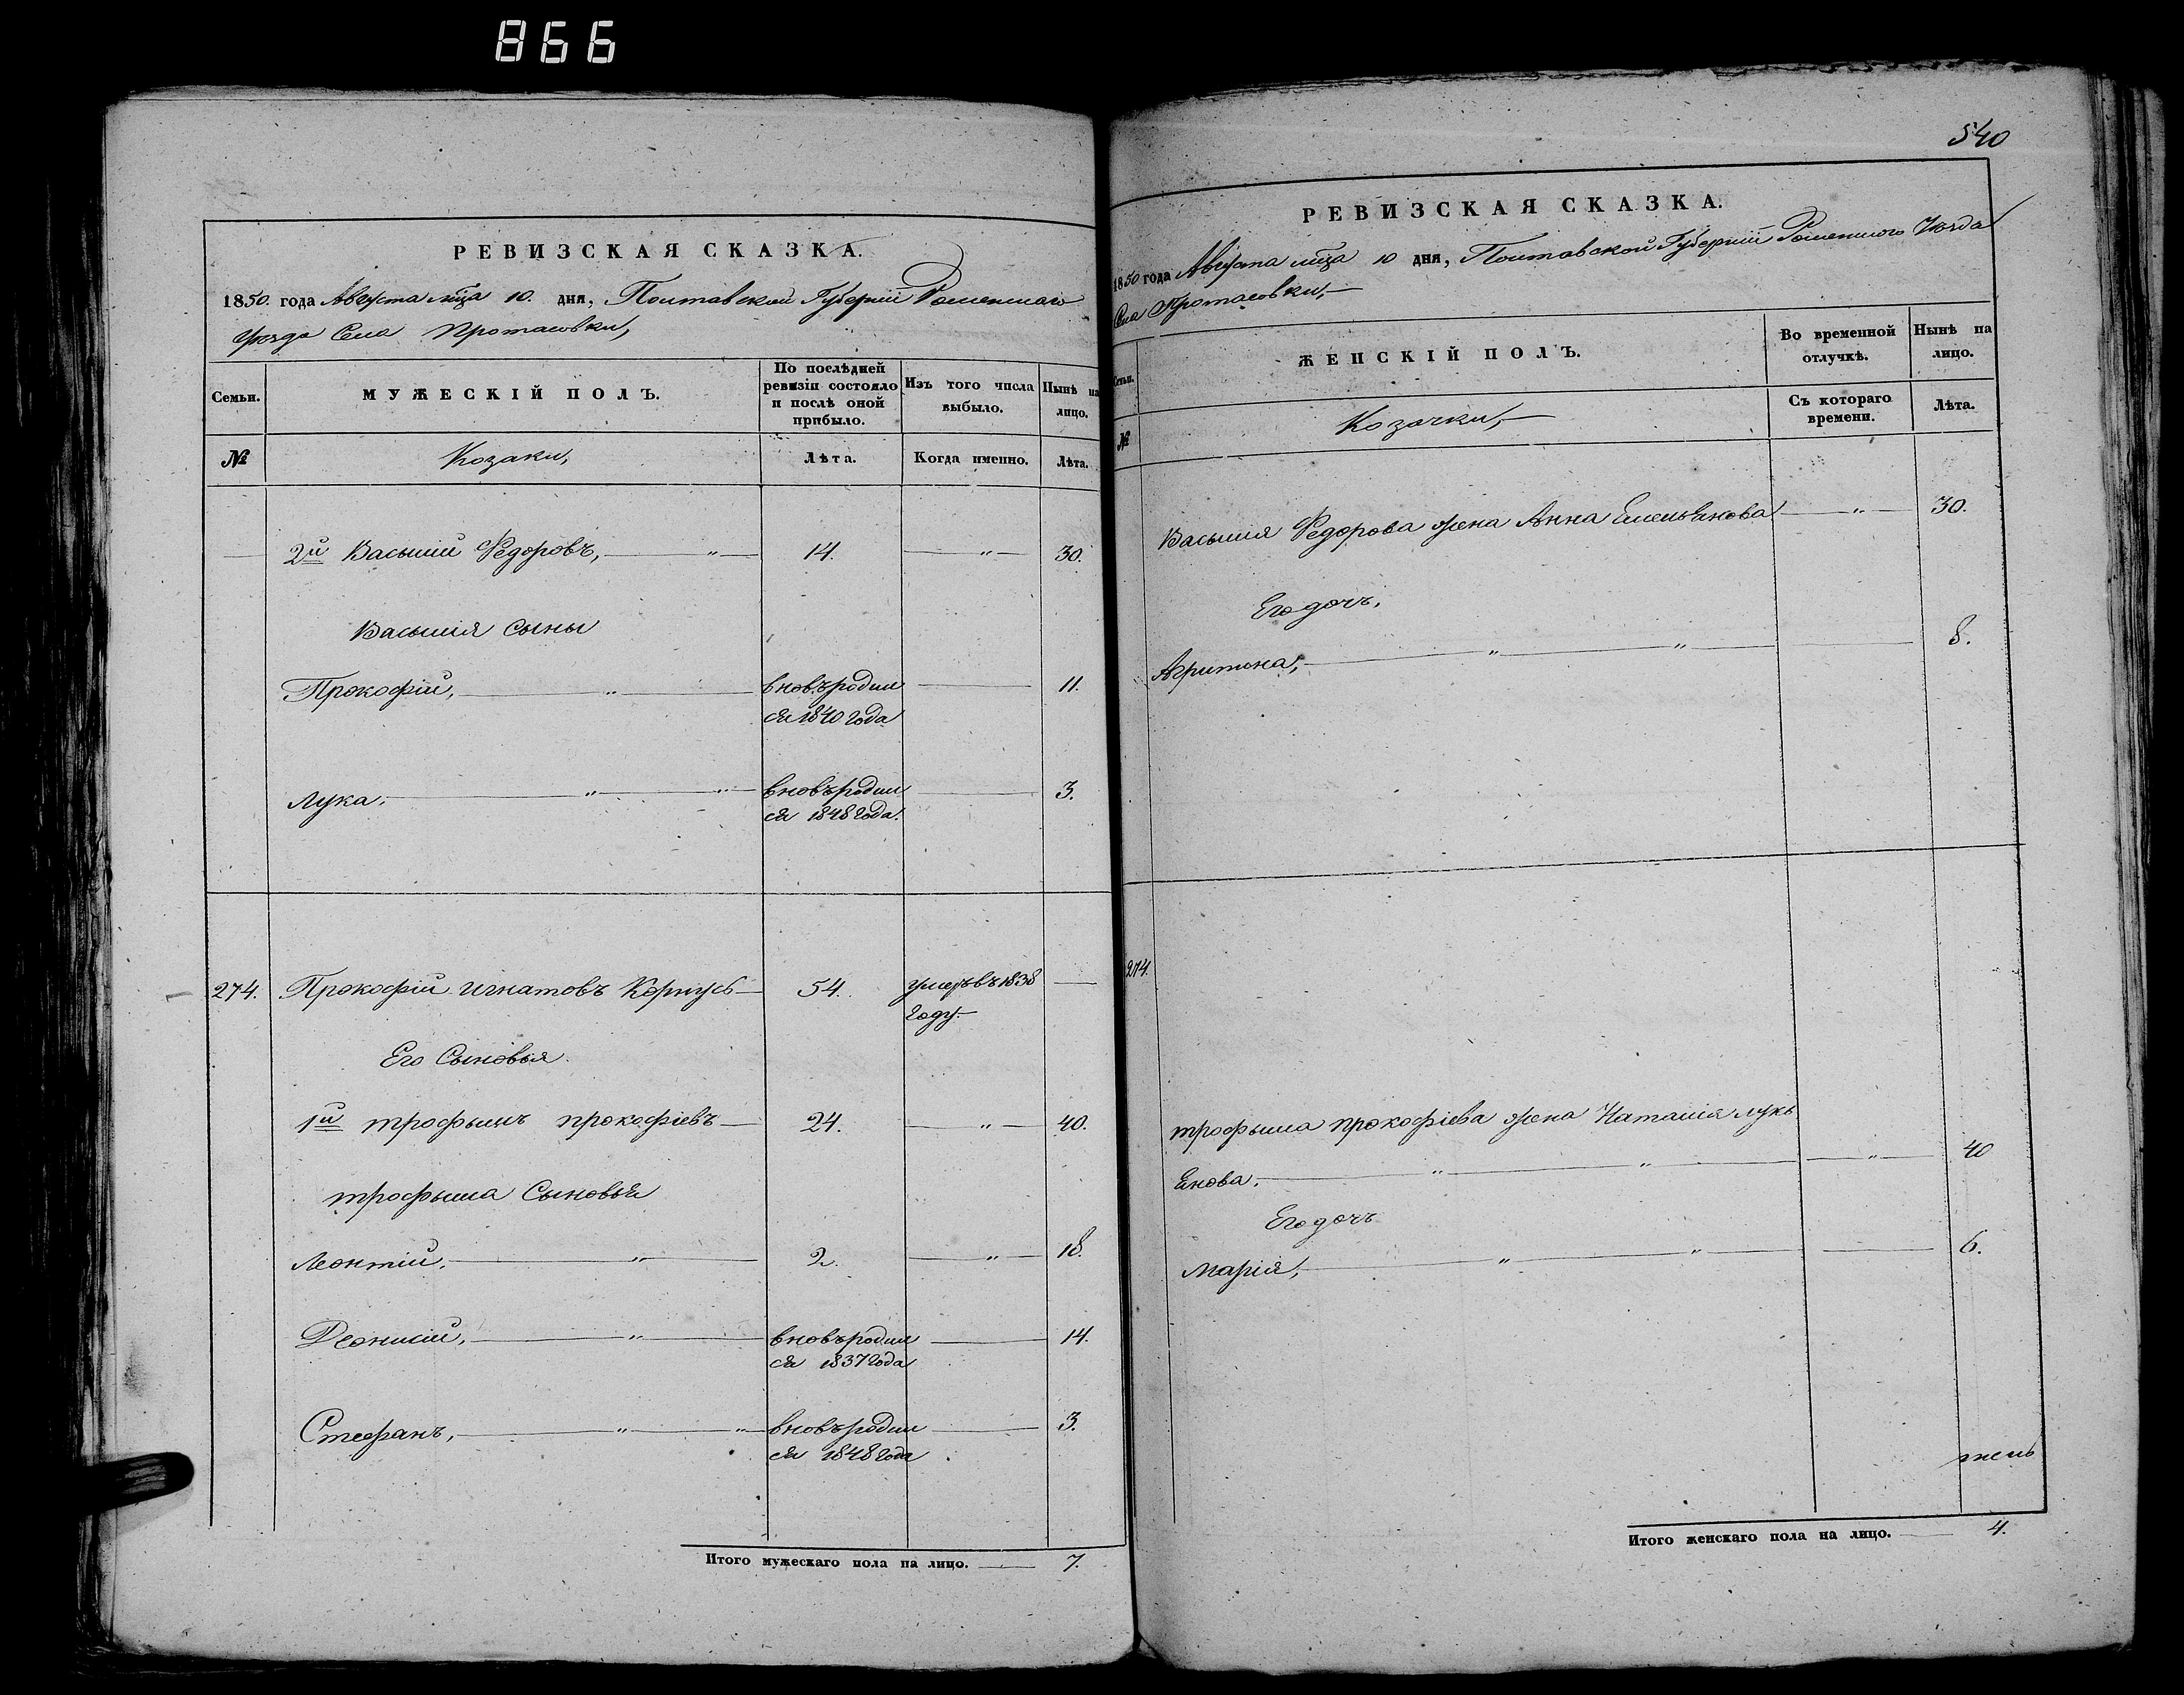 866
РЕВИЗСКАЯ СКАЗКА.
1850. года Августа м̃ца 10. дня, Полтавской Губерніи Роменскаго
уезда Села Протасовки,
Семьи.
МУЖЕСКІЙ ПОЛЪ.
По послѣдней
ревизіи состояло
и послѣ оной
прибыло.
Изъ того числа
выбыло.
Нынѣ на
лицо.
№
Козаки,
Лѣта.
Когда именно.
Лѣта.
2й Васылій Федоровъ, 14. 30.
Васылія Сыны
Прокофій, вновь родил 11.
ся 1840 года
Лука, вновь родил 3.
ся 1848 года.
274. Прокофій Игнатовъ 54. умеръ въ 1838
году
Его Сыновья
1й трофымъ прокофіевъ 24. 40.
трофыма Сыновья
Леонтій, 2. 18.
Деонисій, вновь родил 14.
ся 1837 года
Стефанъ, вновь родил 3.
ся 1848 года
Итого мужескаго пола на лицо. 7.
540
РЕВИЗСКАЯ СКАЗКА.
1850 года Августа м̃ца 10 дня, Полтавской Губерніи Роменского Уезда
Села Протасовки,
Семьи.
ЖЕНСКІЙ ПОЛЪ.
Во временной
отлучкѣ.
Нынѣ на
лицо.
№
Козачки,
Съ котораго
времени.
Лѣта.
Васылія Федорова жена Анна Емельянова 30.
Его дочь,
8.
274.
трофыма прокофіева жена Наталія лукь
Енова, 40
Его дочь
Марія, 6.
Итого женскаго пола на лицо. 4.